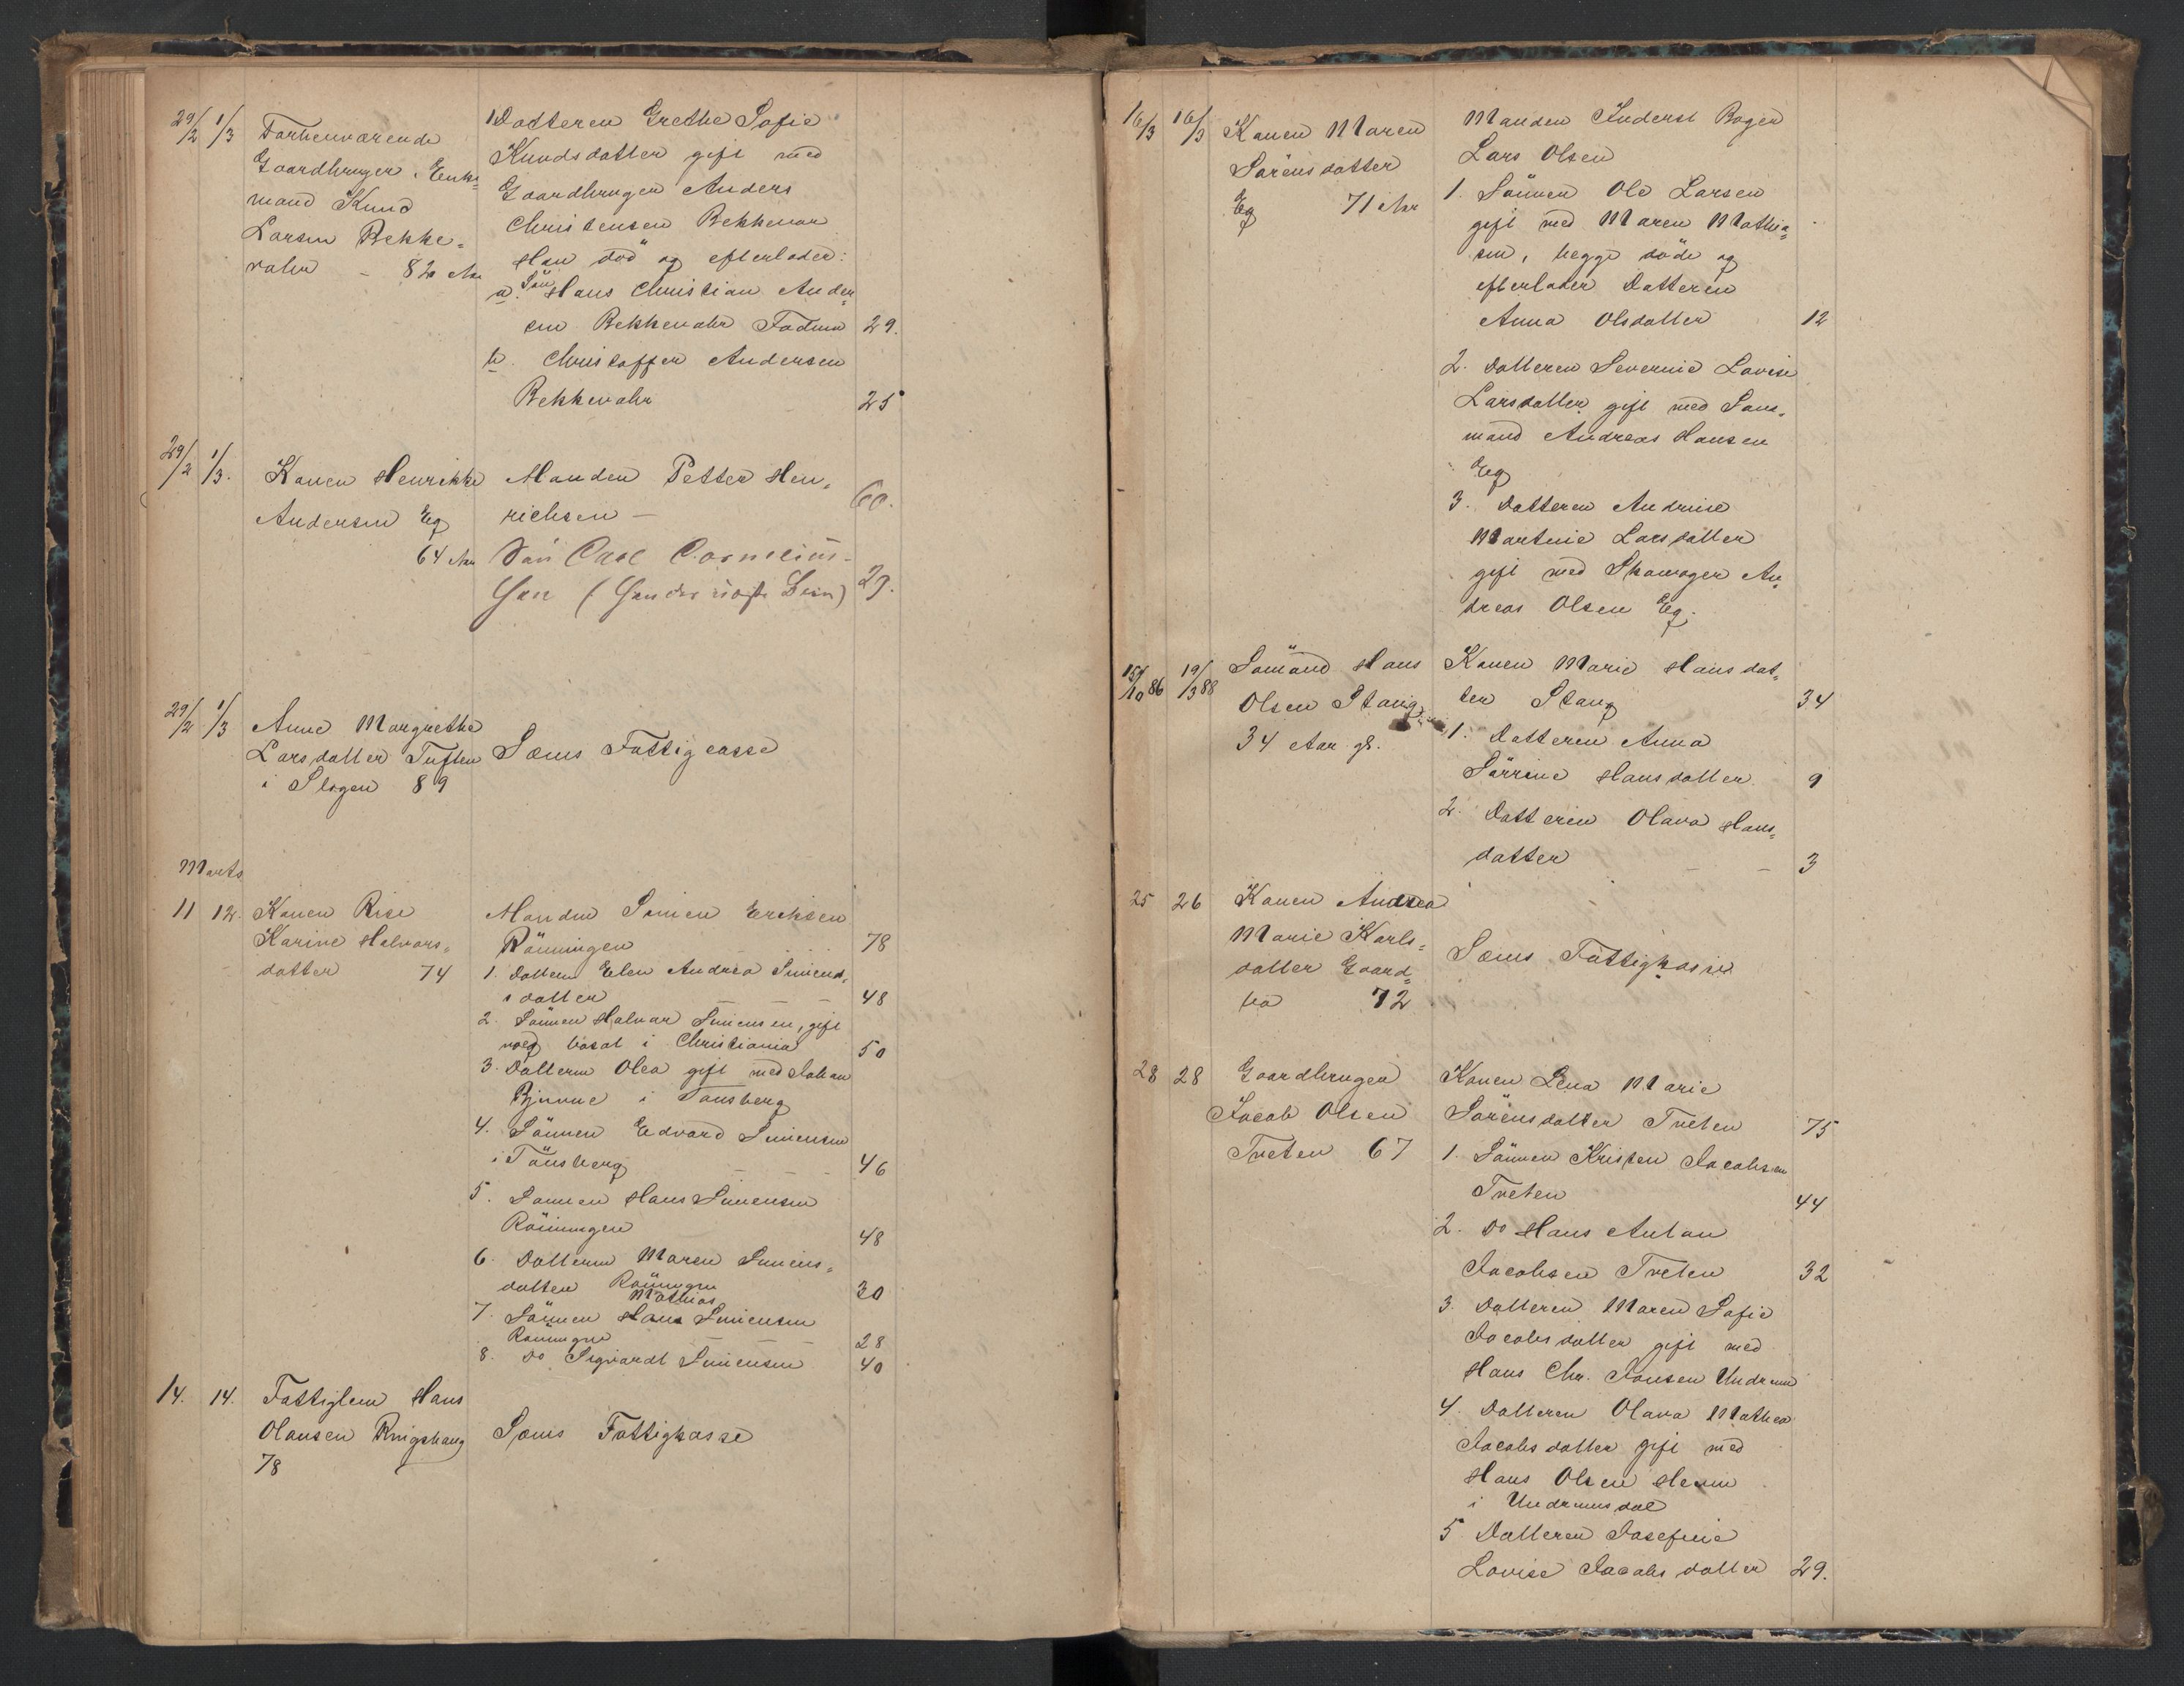 29/2 1/3 Forhenværende
Gaardbruger, Enke=
mand Knud
Larsen Bekke=
vahr – 82 Aar
1 Datteren Grethe Sofie
Knudsdatter gift med
Gaardbruger Anders
Christensen Bekkevar
Hun död og efterlader:
a. Sön Hans Christian Ander
sen Bekkevahr Fadum 29.
b. Christoffer Andersen
Bekkevahr 25
29/2 1/3. Konen Henrikke
Andersen Eg
64 Aar
Manden Petter Hen=
richsen – 60.
Sön Carl Cornelius=
Sen 29.
29/2 1/3 Anne Margrethe
Larsdatter Tuften
i Slagen 89
Sæms Fattigcasse
Marts
11 12. Konen Rise
Karine Halvors=
datter 74
Manden Simen Eriksen
Rönningen 78
1. Datteren Elen Andrea Simens=
datter – – – 48
2. Sönnen Halvar Simensen, gift
og bosat i Christiania 50
3. Datteren Olea gift med Johan
Bjunne i Tönsberg
4. Sönnen Edvard Simensen
i Tönsberg – – – 46
5. Sönnen Hans Simensen
Rönningen 48
6. Datteren Maren Simens=
datter Rönningen 30
Mathias
7. Sönnen Hans Simensen
Rönningen – – – 28
8. do Sigvardt Simensen 40
14. 14. Fattiglem Hans
Olausen Ringshaug
78
Sæms Fattigkasse
16/3 16/3 Konen Maren
Sörensdatter
Eg 71 Aar
Manden Inderst Bager
Lars Olsen
1. Sönnen Ole Larsen
gift med Maren Mathia=
sen, begge döde og
efterlader Datteren
Anna Olsdatter 12
2. Datteren Severine Lovise
Larsdatter gift med Sons=
mand Andreas Hansen
Eg
3. Datteren Andrine
Martine Larsdatter
gift med Skomager An=
dreas Olsen Eg.
15/10 86 19/3 88 Sömand Hans
Olsen Stang
34 Aar gl.
Konen Marie Hansdat=
ter Stang 34
1. Datteren Anna
Sörrine Hansdatter 9
2. Datteren Olava Hans=
datter – – 3
25 26 Konen Andrea
Marie Karls=
datter Gaard=
bo 72
Sæms Fattigkasse
28 28 Gaardbruger
Jacob Olsen
Tveten 67
Konen Lena Marie
Sörensdatter Tveten 75
1. Sönnen Kristen Jacobsen
Tveten 44
2. do Hans Anton
Jacobsen Tveten 32
3. Datteren Maren Sofie
Jacobsdatter gift med
Hans Chr. Jansen Undrum
4. Datteren Olava Mathea
Jacobsdatter gift med
Hans Olsen Hem
i Undrumsdal
5. Datteren Josefine
Lovise Jacobsdatter 29.